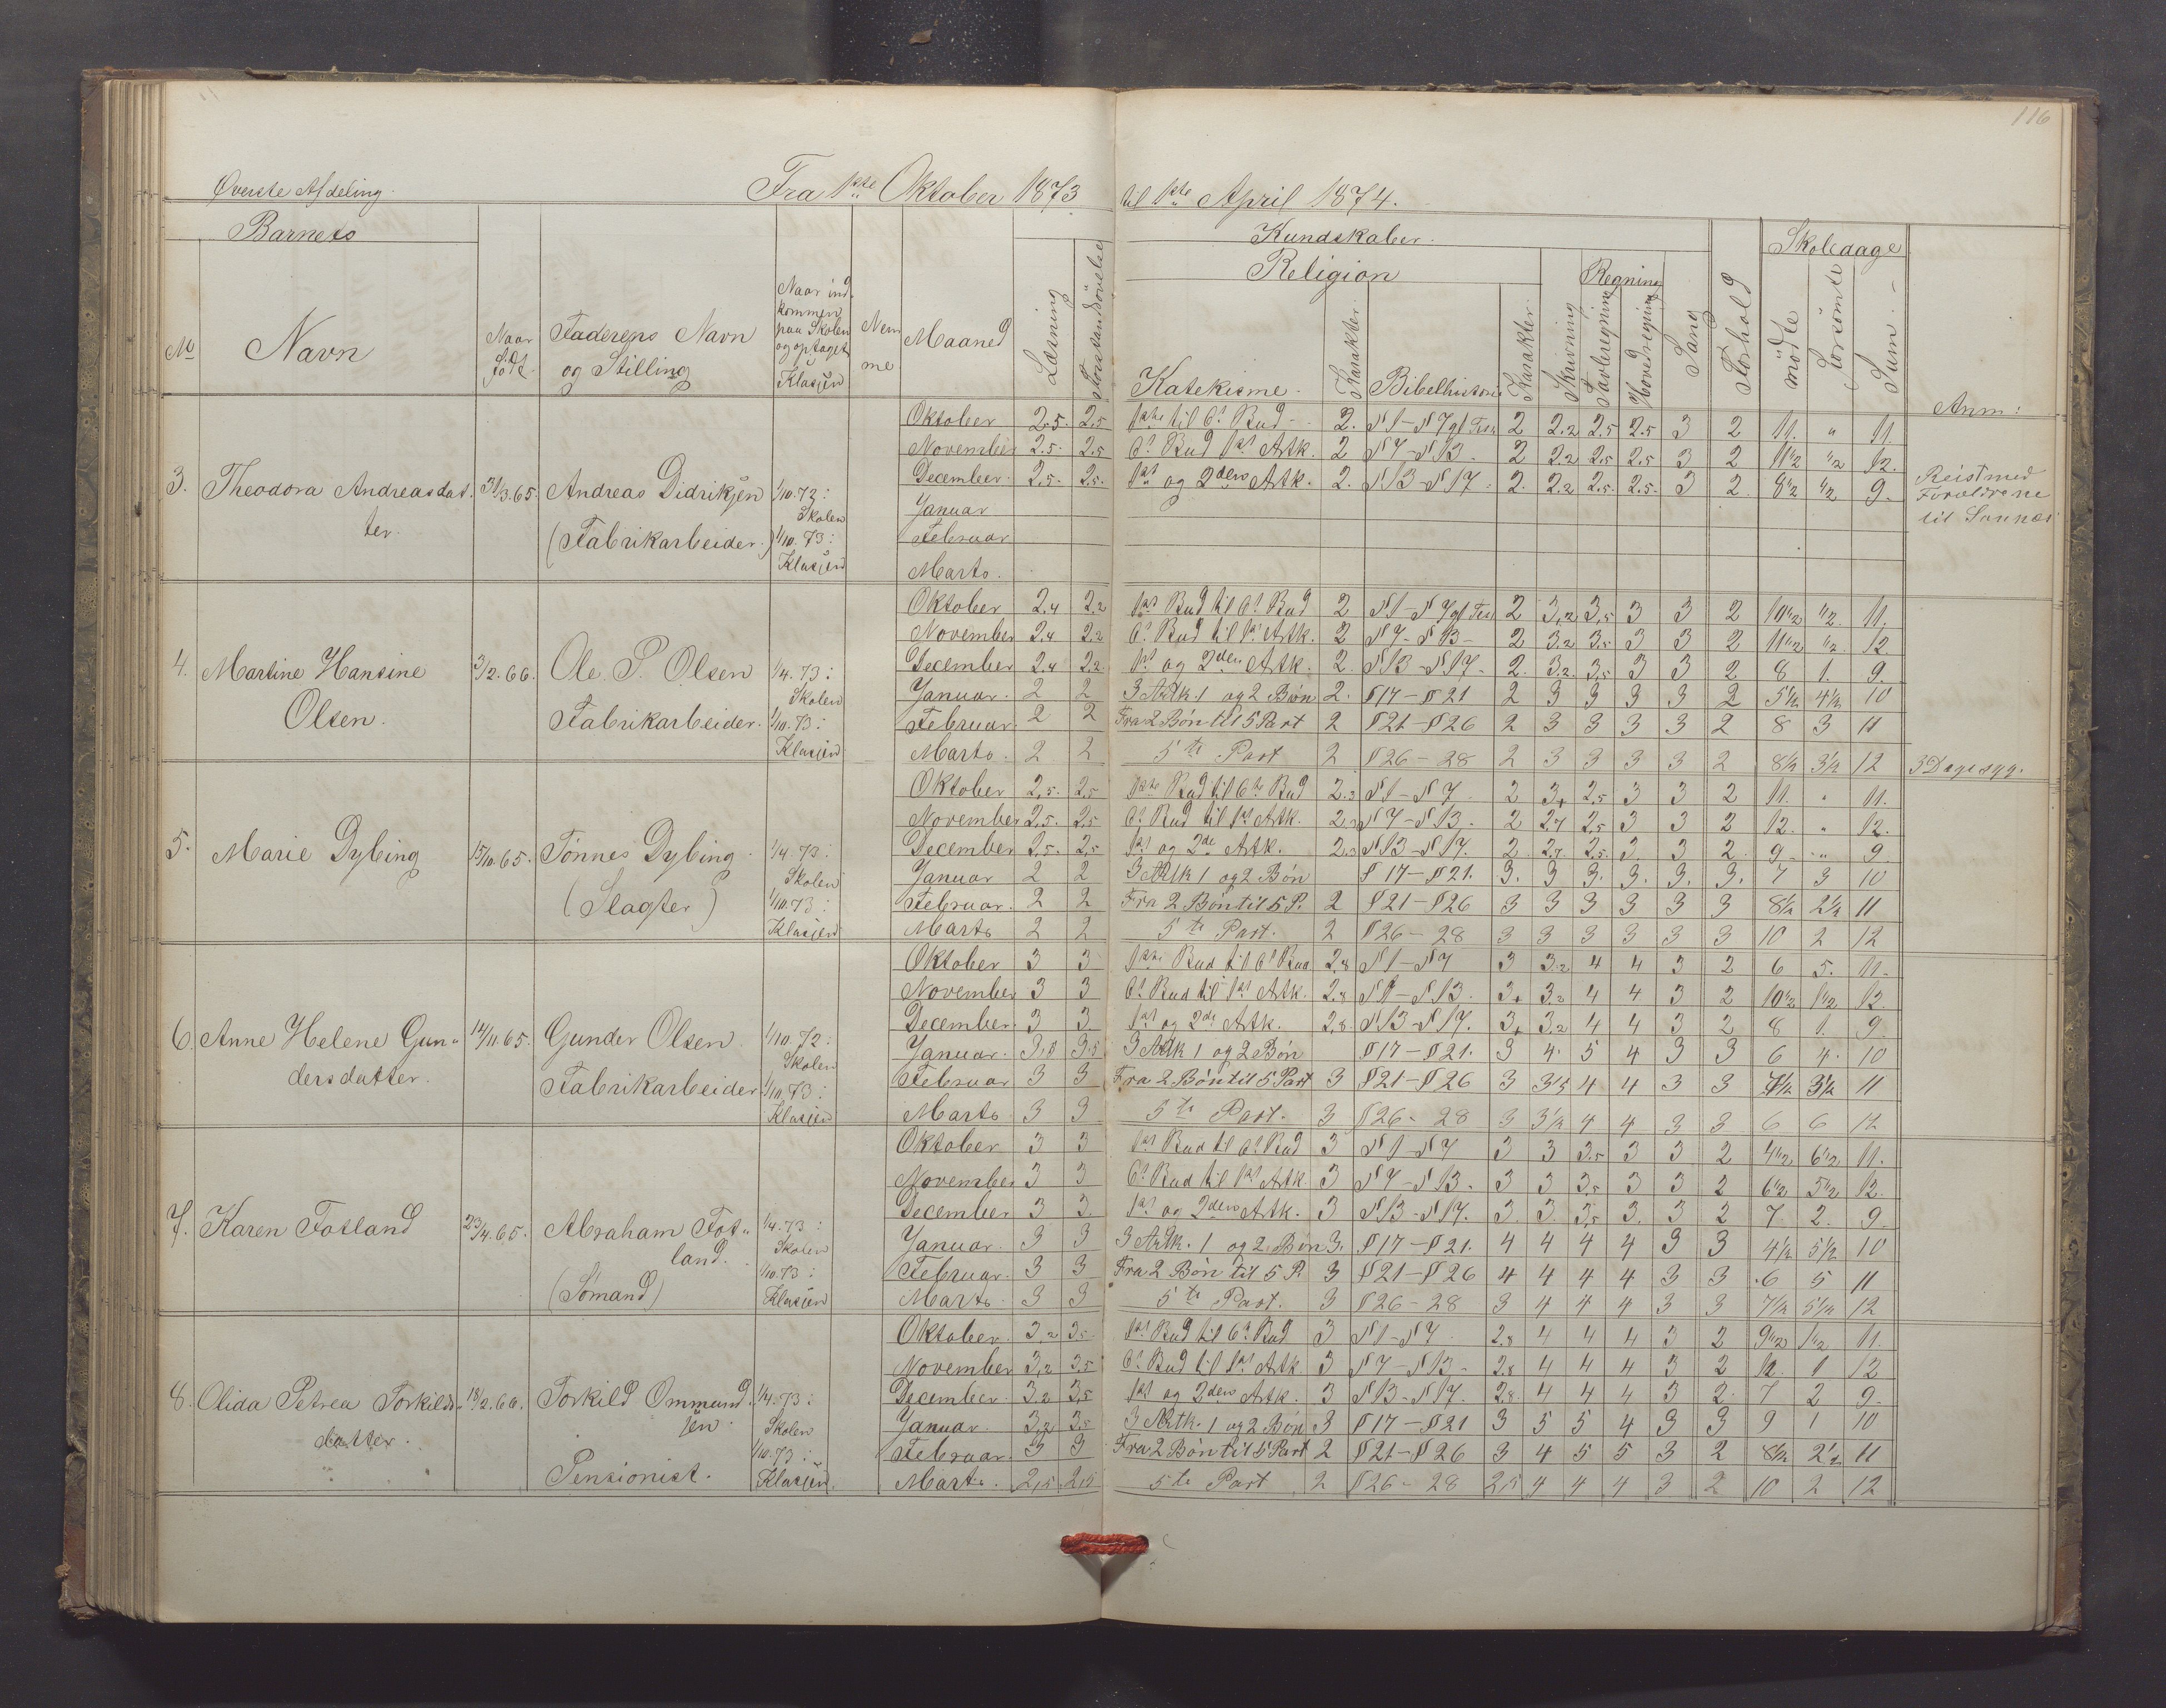 116
Øverste Afdeling. Fra 1ste Oktober 1873 til 1ste April 1874.
Barnets Kundskaber. Skoledage
Religion Regning
No Navn Naar født Faderens Navn og Stilling Naar indkommen paa Skolen og optaget i Klassen Nemme Maaned Læsning Forstandsøvelse Katekisme Karakter Bibelhistorie Karakter Skrivning Tavleregning Hovedregning Sang Forhold mødte Forsømte Sum Anm:
Oktober 2.5. 2.5 1ste til 6te Bud 2. § 1 – § 7 gl Tes. 2 2.2 2.5 2.5 3 2 11. " 11.
November 2.5. 2.5 6te Bud 1ste Artk. 2 § 7 – § 13. 2 2.2 2.5 2.5 3 2 11 1/2 1/2 12.
3. Theodora Andreasdat- 31/3.65. Andreas Didriksen 1/10.72: December 2.5. 2.5. 1ste og 2den Artk. 2. § 13 – § 17. 2. 2.2 2.5. 2.5. 3 2. 8 1/2 1/2 9. Reist med
ter. Skolen Januar Forældrene
(Fabrikarbeider.) 1/10.73: Februar til Sannes
Klassen Marts.
Oktober 2.4 2.2 1ste Bud til 6te Bud 2 § 1 – § 7 gl Tes. 2 3.2 3.5 3 3 2 10 1/2 1/2 11.
November 2.4 2.2 6te Bud til 1ste Artk. 2 § 7 – § 13 – 2 3.2 3.5 3 3 2 11 1/2 1/2 12
4. Martine Hansine 3/2.66. Ole. P. Olsen 1/4.73: December 2.4 2.2 1ste og 2den Artk. 2. § 13 – § 17. 2. 3.2. 3.5 3 3 2 8 1. 9.
Olsen. Skolen Januar. 2 2 3 Artk. 1 og 2 Bøn 2. § 17 – § 21 2 3 3 3 3 2 5 1/2 4 1/2 10
Fabrikarbeider. 1/10.73: Februar. 2 2 Fra 2 Bøn til 5 Part 2 § 21 – § 26 2 3 3 3 3 2 8 3 11
Klassen Marts. 2 2 5te Part 2 § 26 – 28 2 3 3 3 3 2 8 1/2 3 1/2 12 3 Dage syg.
Oktober 2.5. 2.5 1ste Bud til 6te Bud 2.3 § 1 – § 7 2 3+ 2.5 3 3 2 11. " 11.
November 2.5. 2.5 6te Bud til 1ste Artk. 2.3 § 7 – § 13. 2 2.7 2.5 3 3 2 12. " 12.
5. Marie Dybing 15/10.65. Tønnes Dybing 1/4.73: December 2.5. 2.5 1ste og 2de Artk. 2.3 § 13 – § 17. 2. 2.7. 2.5. 3. 3 2. 9. " 9.
Skolen Januar 2 2 3 Artk 1 og 2 Bøn § 17 – § 21. 3. 3 3. 3. 3. 3. 7 3 10
(Slagter) 1/10.73: Februar. 2 2 Fra 2 Bøn til 5 P. 2 § 21 – § 26 3 3 3 3 3 3 8 1/2 2 1/2 11
Klassen Marts 2 2 5te Part. 2 § 26 – 28 3 3 3 3 3 3 10 2 12
Oktober 3 3 1ste Bud til 6te Bud 2.8 § 1 – § 7 3 3.2 4 4 3 2 6 5. 11.
November 3 3 6te Bud til 1ste Artk. 2.8 § 7 – § 13. 3+ 3.2 4 4 3 2 10 1/2 1 1/2 12.
6. Anne Helene Gun- 14/11.65. Gunder Olsen 1/10.72: December. 3 3 1ste og 2de Artk. 2.8. § 13 – § 17. 3+ 3.2 4 4 3 2 8 1. 9.
dersdatter. Skolen Januar. 3.5 3.5 3 Artk 1 og 2 Bøn § 17 – § 21. 3 4. 5 4 3 3 6 4. 10
Fabrikarbeider 1/10.73: Februar 3 3 Fra 2 Bøn til 5 Part 3 § 21 – § 26 3 3 1/2 4 4 3 3 7 1/2 3 1/2 11
Klassen Marts 3 3 5te Part. 3 § 26 – 28 3 3 1/2 4 4 3 3 6 6 12
Oktober 3 3 1ste Bud til 6te Bud 3 § 1 – § 7 3 3 3.5 3 3 2 4 1/2 6 1/2 11.
November 3 3 6te Bud til 1ste Artk. 3 § 7 – § 13. 3 3 3.5 3 3 2 6 1/2 5 1/2 12.
7. Karen Fosland 23/4.65. Abraham Fos- 1/4.73: December 3 3. 1ste og 2den Artk. 3 § 13 – § 17. 3. 3. 3.5 3. 3 2 7. 2. 9.
land. Skolen Januar. 3 3 3 Artk. 1 og 2 Bøn 3. § 17 – § 21. 4 4 4 4 3 3 4 1/2 5 1/2 10
1/10.73: Februar. 3 3 Fra 2 Bøn til 5 P. 3 § 21 – § 26 4 4 4 4 3 3 6 5 11
(Sømand) Klassen Marts 3 3 5te Part. 3 § 26 – 28 3 4 4 4 3 3 7 1/2 5 1/2 12
Oktober. 3.2 3.5. 1ste Bud til 6te Bud 3 § 1 – § 7 2.8 4 4 4 3 2 9 1/2 1 1/2 11.
November 3.2 3.5 6te Bud til 1ste Artk 3 § 7 – § 13 – 2.8 4 4 4 3 2 12. 1 12
8. Olida Petrea Torkilds- 18/2.66. Torkild Ommund- 1/4.73: December. 3.2 3.5 1ste og 2den Artk. 3 § 13 – § 17. 2.8. 4 4 4 3 2. 7 2 9.
datter. sen. Skolen Januar. 3.2 3.5 3 Artk. 1 og 2 Bøn 3 § 17 – § 21 3 5 5 4 3 3 9 1 10
1/10.73: Februar. 3 3 Fra 2 Bøn til 5 Part 2 § 21 – § 26 3 4 5 5 3 2 8 1/2 2 1/2 11
Pensionist. Klassen. Marts. 2,5 2,5 5te Part 2 § 26 – 28 2,5 4 4 4 3 2 10 2 12